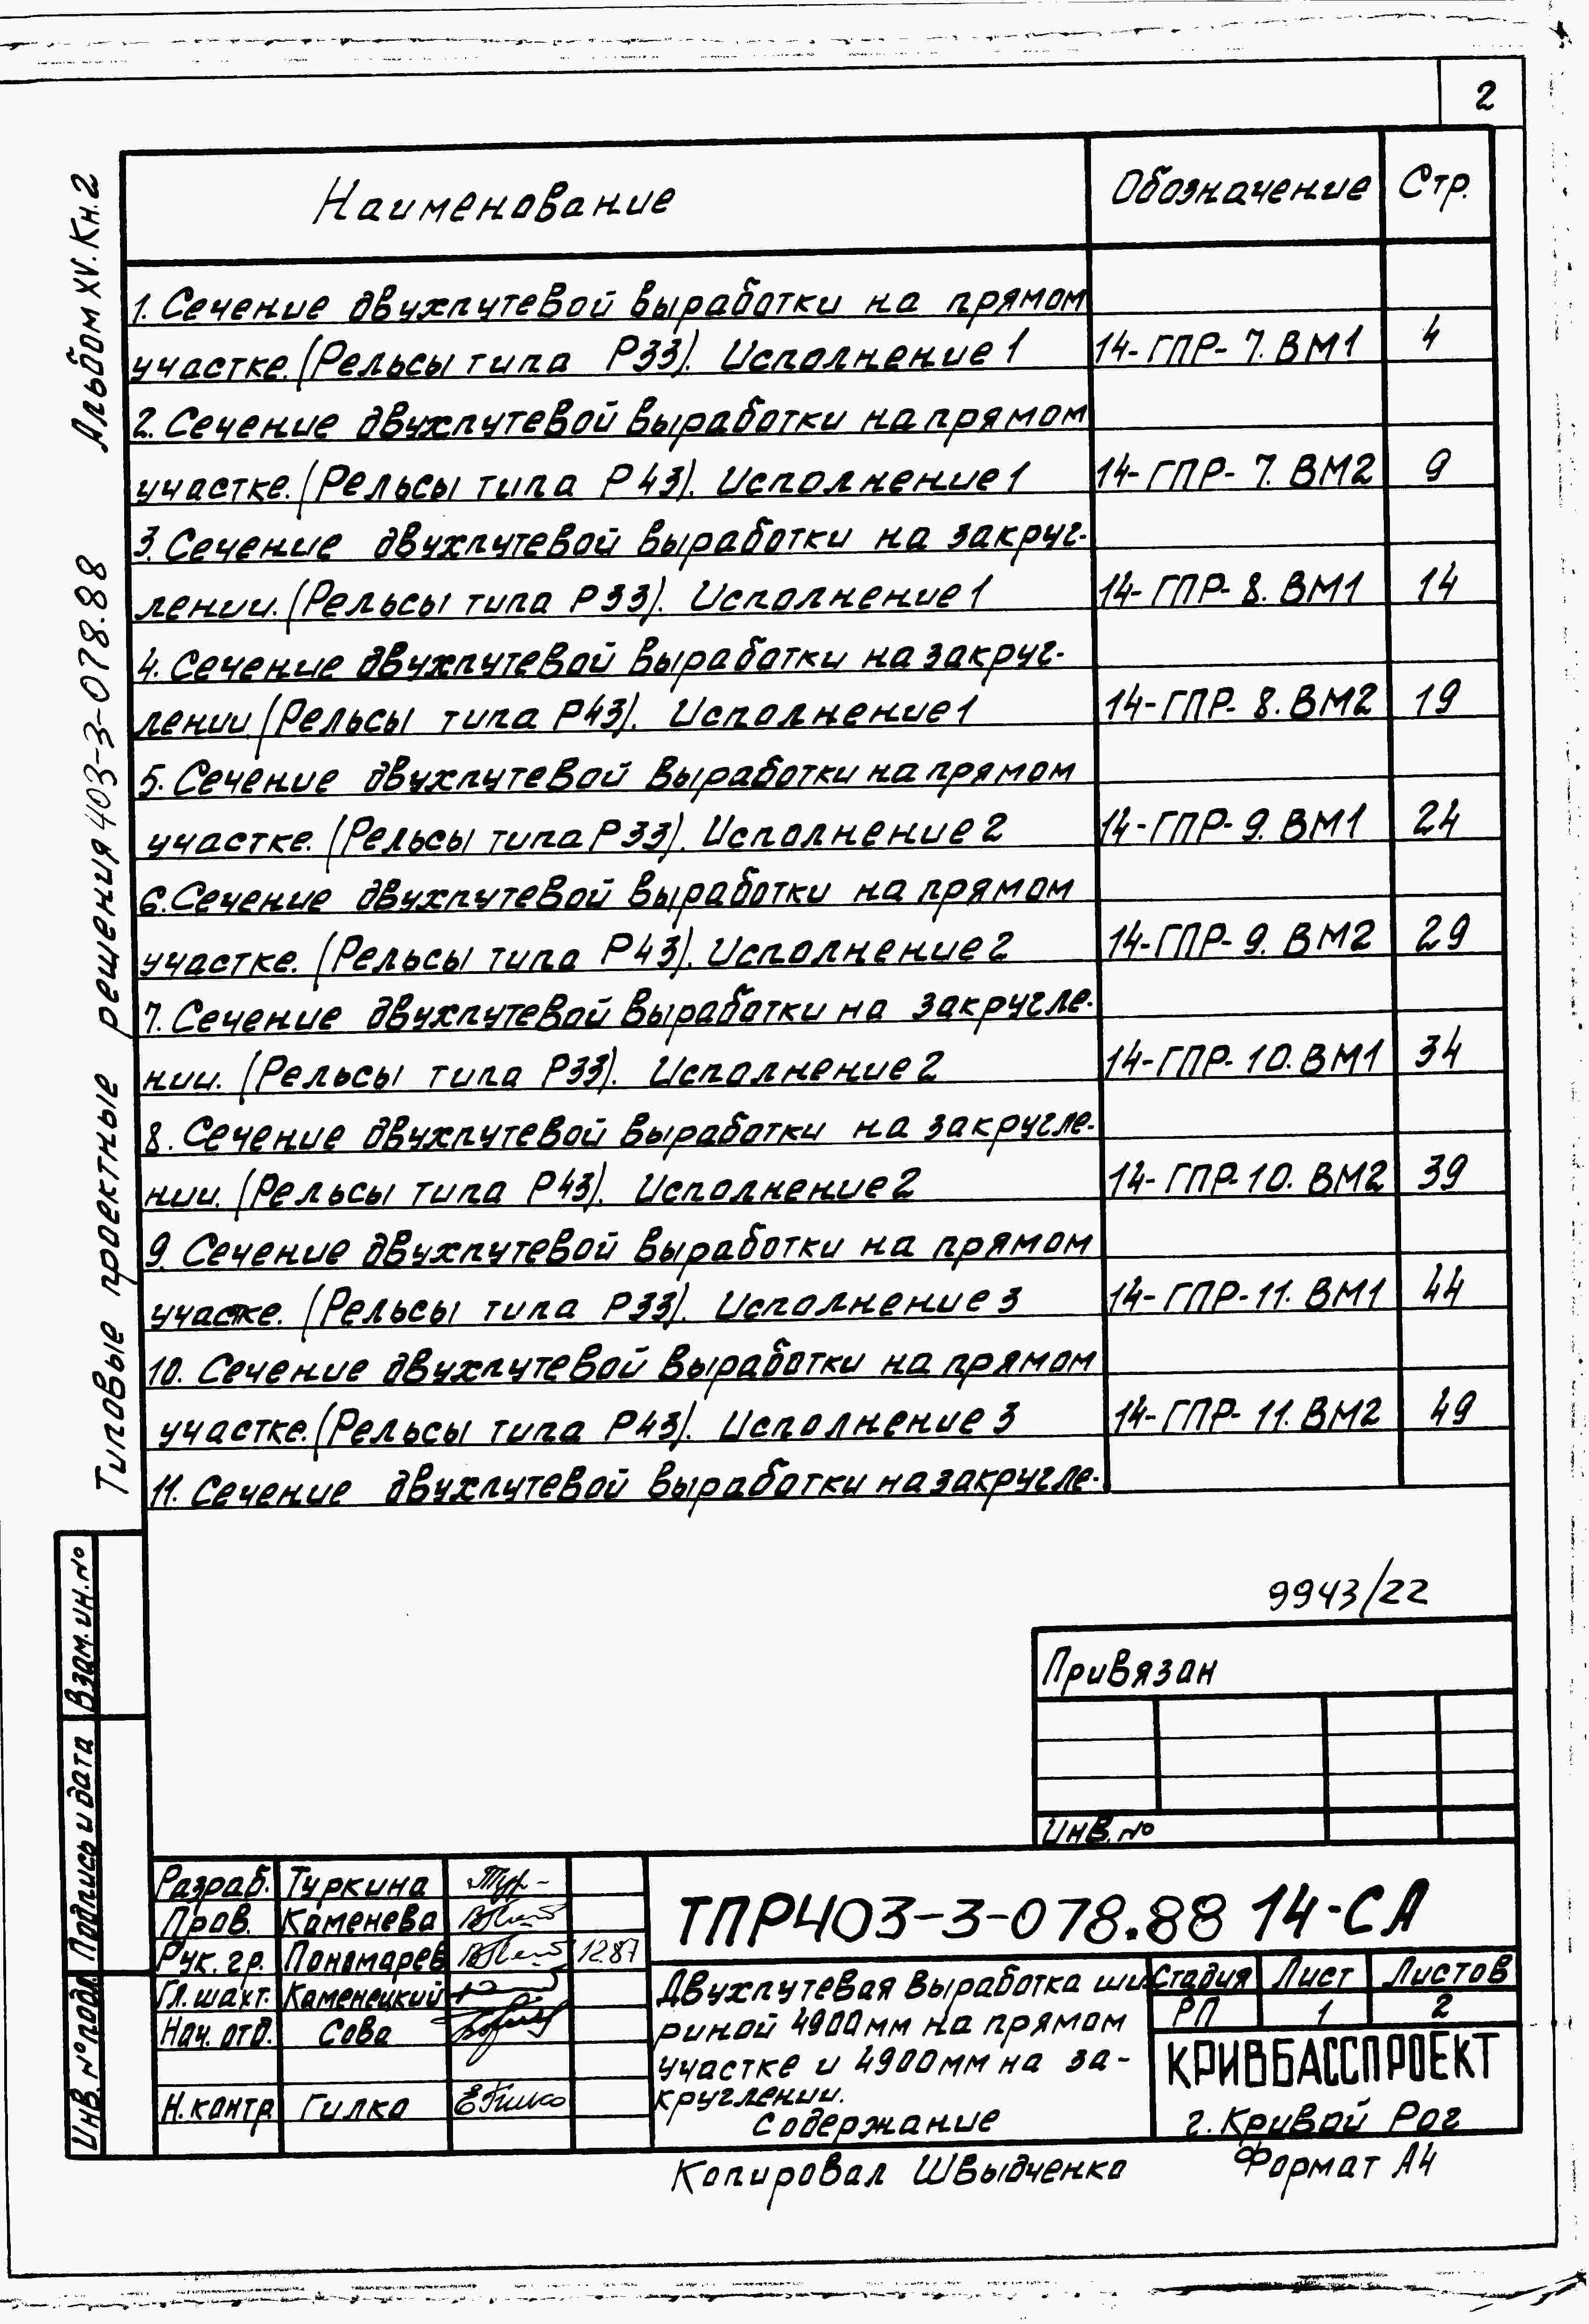 2
Альбом XV. Кн. 2
Типовые проектные решения 403-3-078.88
Наименование Обозначение Стр.
1. Сечение двухпутевой выработки на прямом
участке. (Рельсы типа Р33). Исполнение 1 14-ГПР-7.ВМ1 4
2. Сечение двухпутевой выработки на прямом
участке. (Рельсы типа Р43). Исполнение 1 14-ГПР-7.ВМ2 9
3. Сечение двухпутевой выработки на закруг-
лении. (Рельсы типа Р33). Исполнение 1 14-ГПР-8.ВМ1 14
4. Сечение двухпутевой выработки на закруг-
лении. (Рельсы типа Р43). Исполнение 1 14-ГПР-8.ВМ2 19
5. Сечение двухпутевой выработки на прямом
участке. (Рельсы типа Р33). Исполнение 2 14-ГПР-9.ВМ1 24
6. Сечение двухпутевой выработки на прямом
участке. (Рельсы типа Р43). Исполнение 2 14-ГПР-9.ВМ2 29
7. Сечение двухпутевой выработки на закругле-
нии. (Рельсы типа Р33). Исполнение 2 14-ГПР-10.ВМ1 34
8. Сечение двухпутевой выработки на закругле-
нии. (Рельсы типа Р43). Исполнение 2 14-ГПР-10.ВМ2 39
9. Сечение двухпутевой выработки на прямом
участке. (Рельсы типа Р33). Исполнение 3 14-ГПР-11.ВМ1 44
10. Сечение двухпутевой выработки на прямом
участке. (Рельсы типа Р43). Исполнение 3 14-ГПР-11.ВМ2 49
11. Сечение двухпутевой выработки на закругле-
9943/22
Привязан
Инв. №
Взам. ин. №
Подпись и дата
Инв. № подл.
Разраб. Туркина
Пров. Каменева
Рук. гр. Пономарев 12.87
Гл. шахт. Каменецкий
Нач. отд. Сова
Н. контр Гилка
ТПР403-3-078.88 14-СА
Двухпутевая выработка ши-
риной 4900мм на прямом
участке и 4900мм на за-
круглении.
Содержание
Стадия Лист Листов
РП 1 2
КРИВБАССПРОЕКТ
г. Кривой Рог
Копировал Швыдченко Формат А4